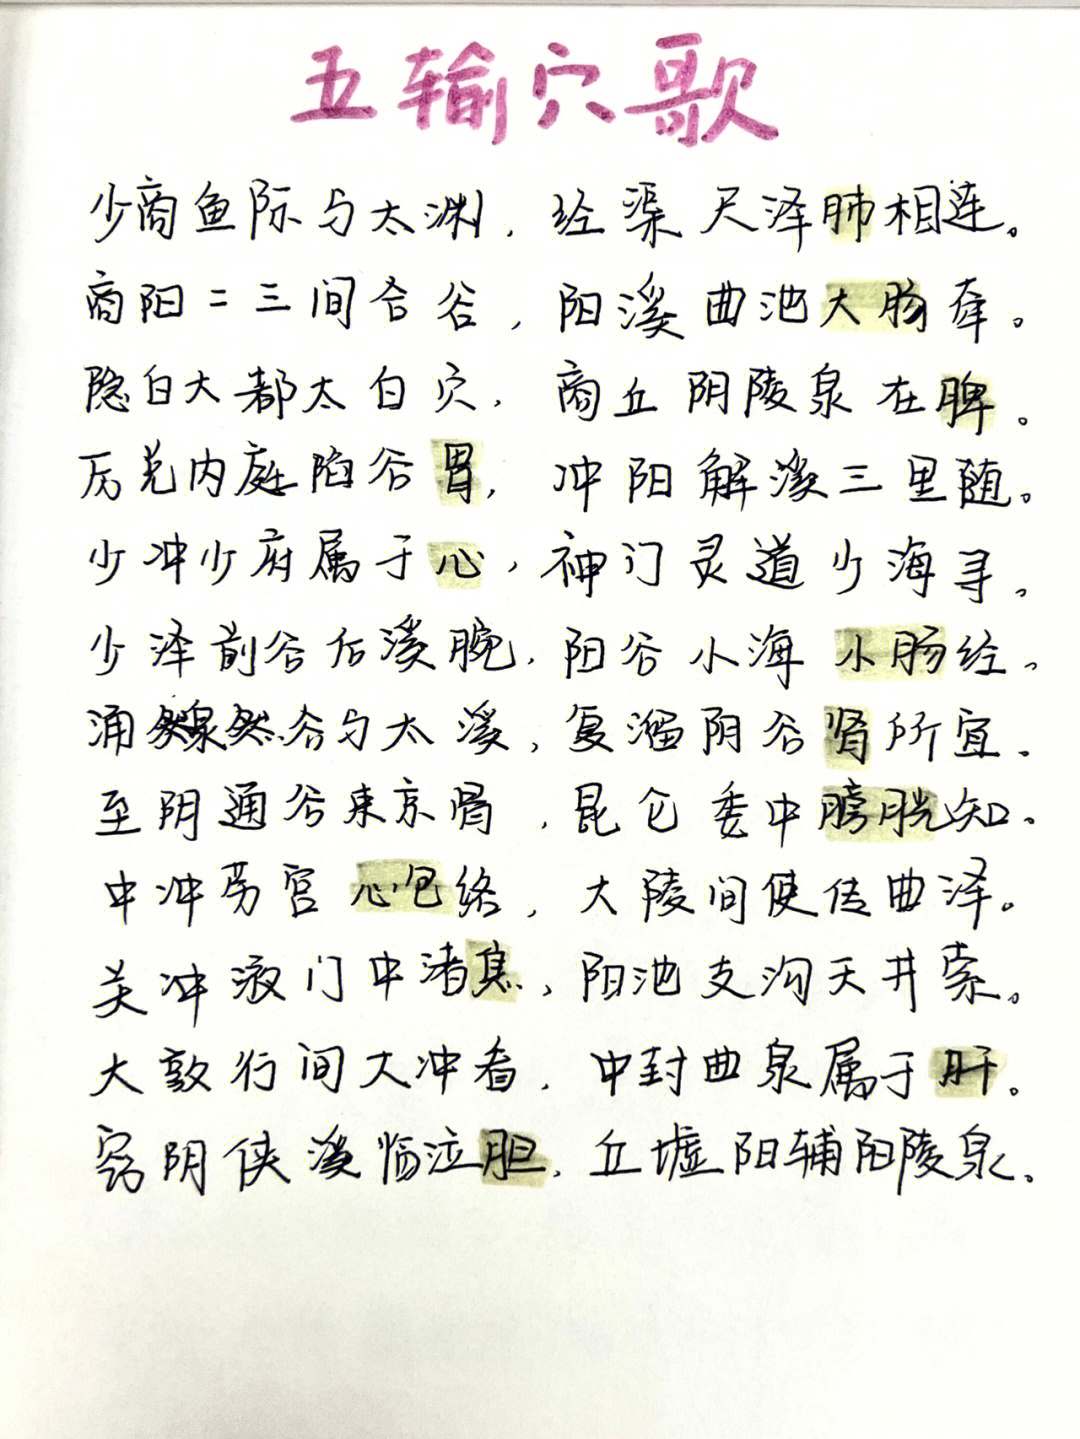 五输穴歌
少商鱼际与太渊，经渠尺泽肺相连。
商阳二三间合谷，阳溪曲池大肠牵。
隐白大都太白穴，商丘阴陵泉在脾。
厉兑内庭陷谷胃，冲阳解溪三里随。
少冲少府属于心，神门灵道少海寻。
少泽前谷后溪腕，阳谷小海小肠经。
涌泉然谷与太溪，复溜阴谷肾所宜。
至阴通谷束京骨，昆仑委中膀胱知。
中冲劳宫心包络，大陵间使传曲泽。
关冲液门中渚焦，阳池支沟天井索。
大敦行间太冲看，中封曲泉属于肝。
窍阴侠溪临泣胆，丘墟阳辅阳陵泉。